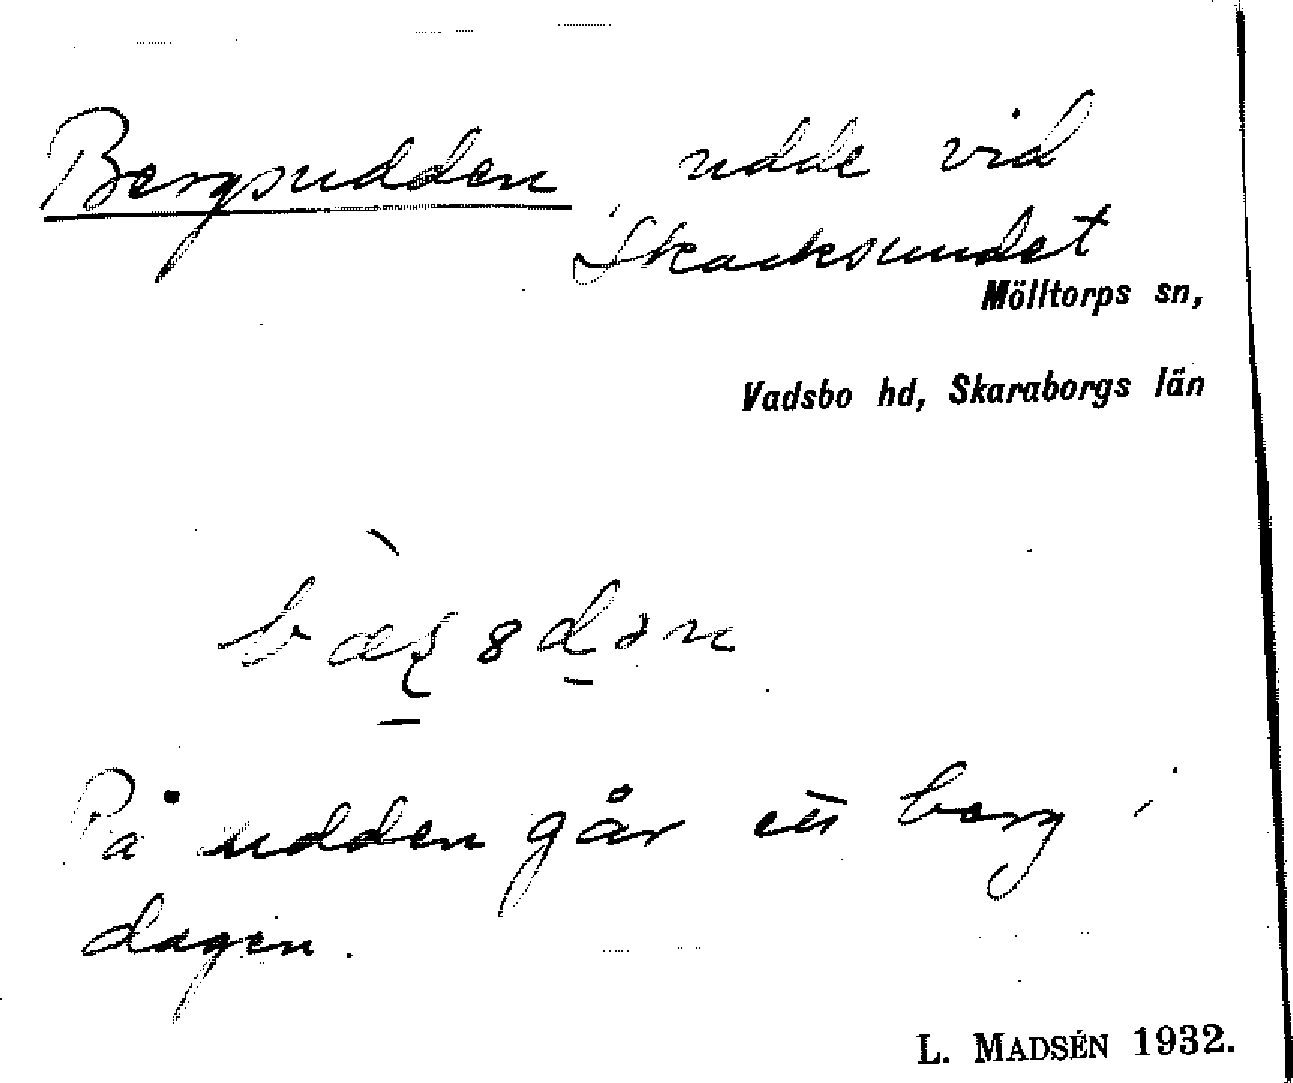 Bergsudden udde vid
Skacksundet
Mölltorps sn,
Vadsbo hd, Skaraborgs län
På udden går ett berg i
dagen.
L. MADSÉN 1932.